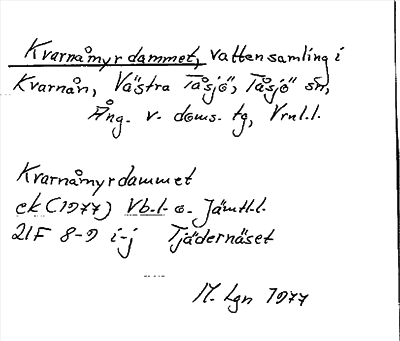 Kvarnåmyrdammet, vattensamling i
Kvarnån, Västra Tåsjö, Tåsjö sn,
Ång. v. doms. tg, Vrnl.l.
Kvarnåmyrdammet
ek (1977) Vb.l. o. Jämtl.l.
21F 8-9 i-j Tjädernäset
M. Lgn 1977